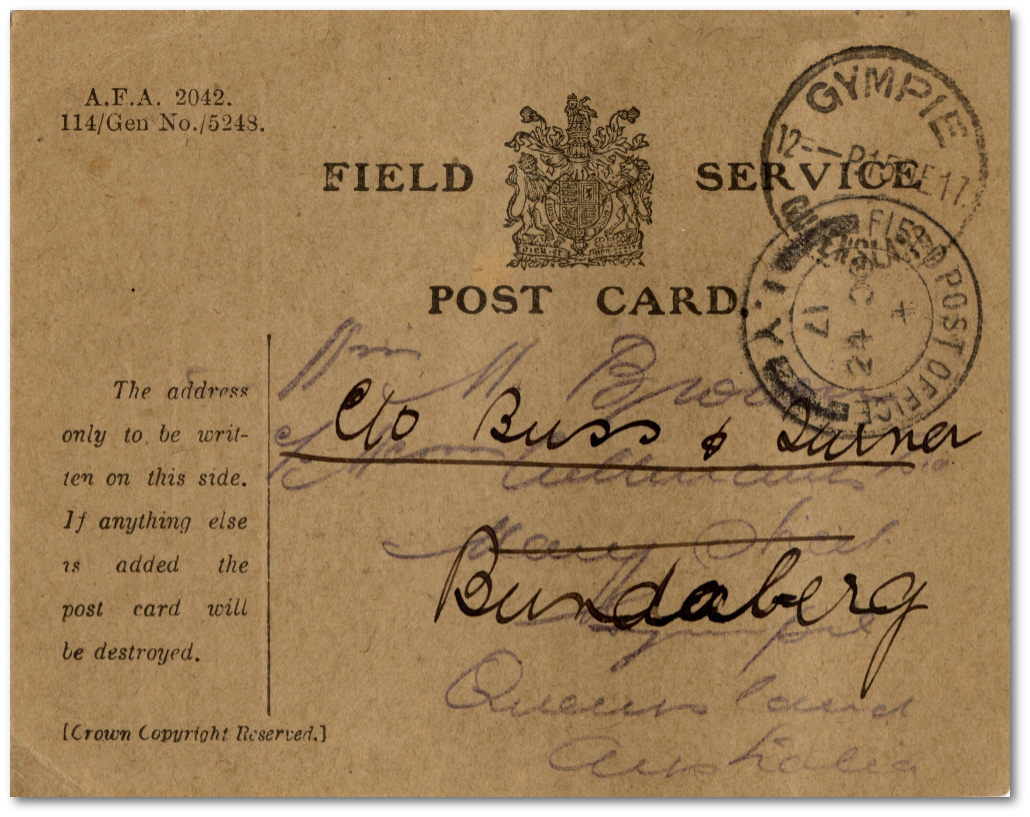 A.F.A. 2042.
114/Gen No./5248.
FIELD SERVICE
POST CARD.
GYMPIE
12-- P 15 DE 17
QUEENSLAND
FIELD POST OFFICE
24 17
The address
only to be writ-
ten on this side.
If anything else
is added the
post card will
be destroyed.
[Crown Copyright Reserved.]
Miss M Brown
C/o Buss & Turner
Mary Street
Bundaberg
Gympie
Queensland
Australia